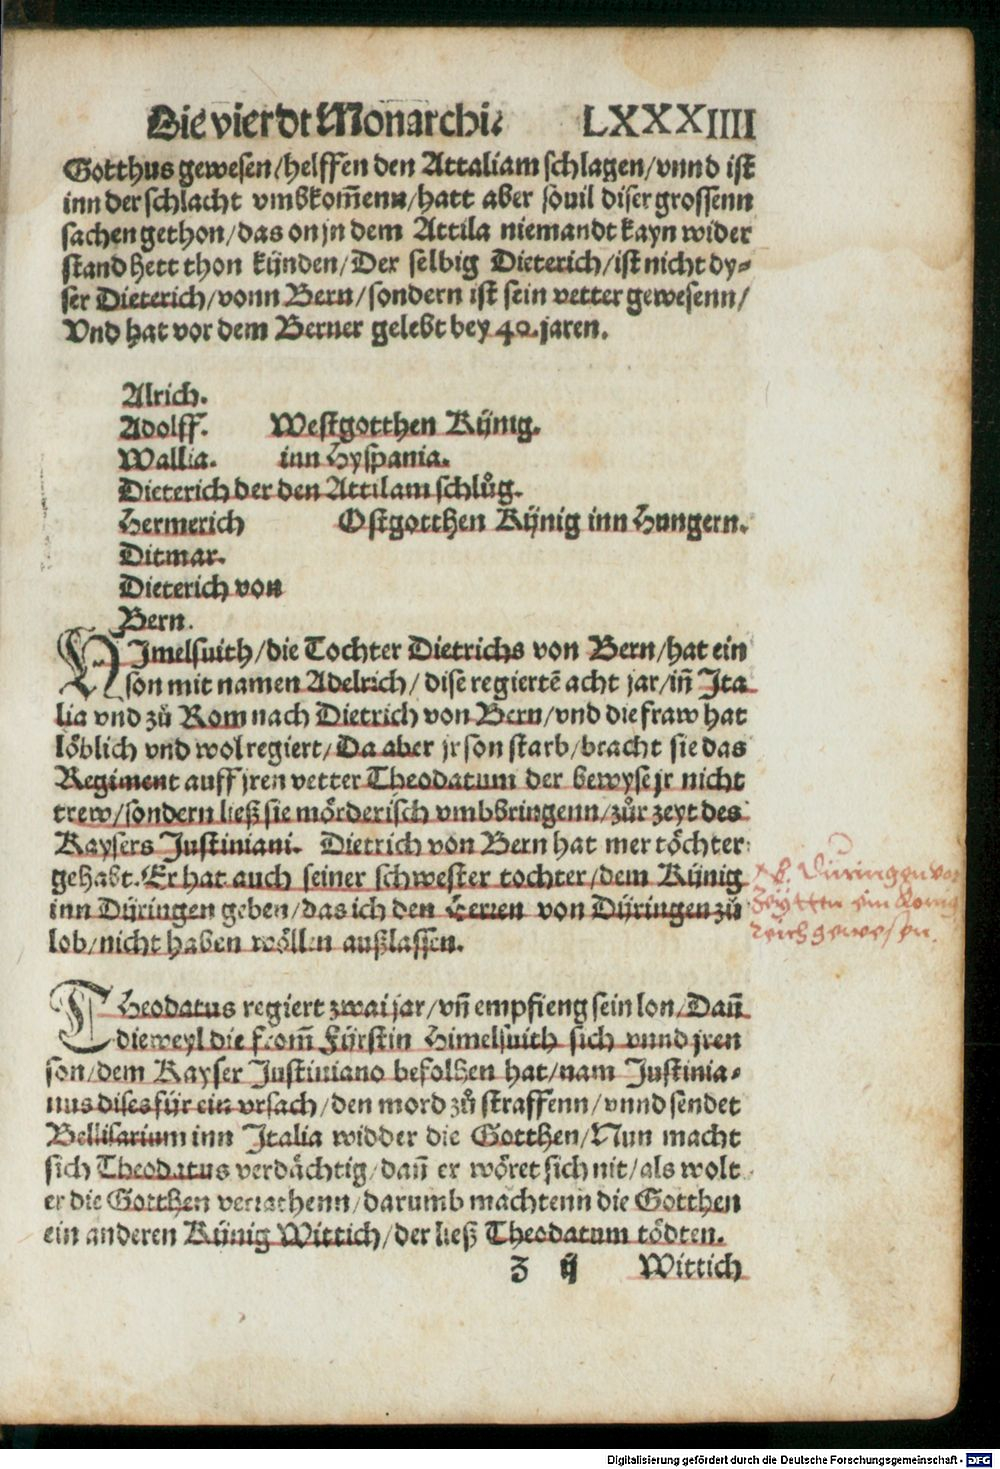 Die vierdt Monarchie LXXXIIII
Gotthus gewesen/helffen den Attaliam schlagen/vnnd ist
inn der schlacht vmbkom̄enn/hatt aber souil diser grossenn
sachen gethon/das on jn dem Attila niemandt kayn wider
stand hett thon kÿnden/Der selbig Dieterich/ist nicht dy⸗
ser Dieterich/vonn Bern/sondern ist sein vetter gewesenn/
Vnd hat vor dem Berner gelebt bey 40. jaren.
Alrich.
Adolff. Westgotthen Kÿnig.
Wallia. inn Hyspania.
Dieterich der den Attilam schlůg.
Hermerich Ostgotthen Kÿnig inn Hungern.
Ditmar.
Dieterich von
Bern.
HImelsuith/die Tochter Dietrichs von Bern/hat ein
son mit namen Adelrich/dise regiertē acht jar/in̄ Ita
lia vnd zů Rom nach Dietrich von Bern/vnd die fraw hat
löblich vnd wol regiert/Da aber jr son starb/bracht sie das
Regiment auff jren vetter Theodatum der bewyse jr nicht
trew/sondern ließ sie mörderisch vmbbringenn/zůr zeyt des
Kaysers Justiniani. Dietrich von Bern hat mer töchter
gehabt. Er hat auch seiner schwester tochter/dem Kÿnig
inn Dÿringen geben/das ich den Herren von Dÿringen zů
lob/nicht haben wöllen außlassen.
NB. Düringen vor
Zeytten ein König
reich gewesen.
THeodatus regiert zwai jar/vn̄ empfieng sein lon/Dan̄
dieweyl die from̄ Fÿrstin Himelsuith sich vnnd jren
son/dem Kayser Justiniano befolhen hat/nam Justinia⸗
nus dises fÿr ein vrsach/den mord zů straffenn/vnnd sendet
Bellisarium inn Italia widder die Gotthen/Nun macht
sich Theodatus verdächtig/dan̄ er wöret sich nit/als wolt
er die Gotthen verrathenn/darumb machtenn die Gotthen
ein anderen Kÿnig Wittich/der ließ Theodatum tödten.
Z ij Wittich
Digitalisierung gefördert durch die Deutsche Forschungsgemeinschaft - DFG